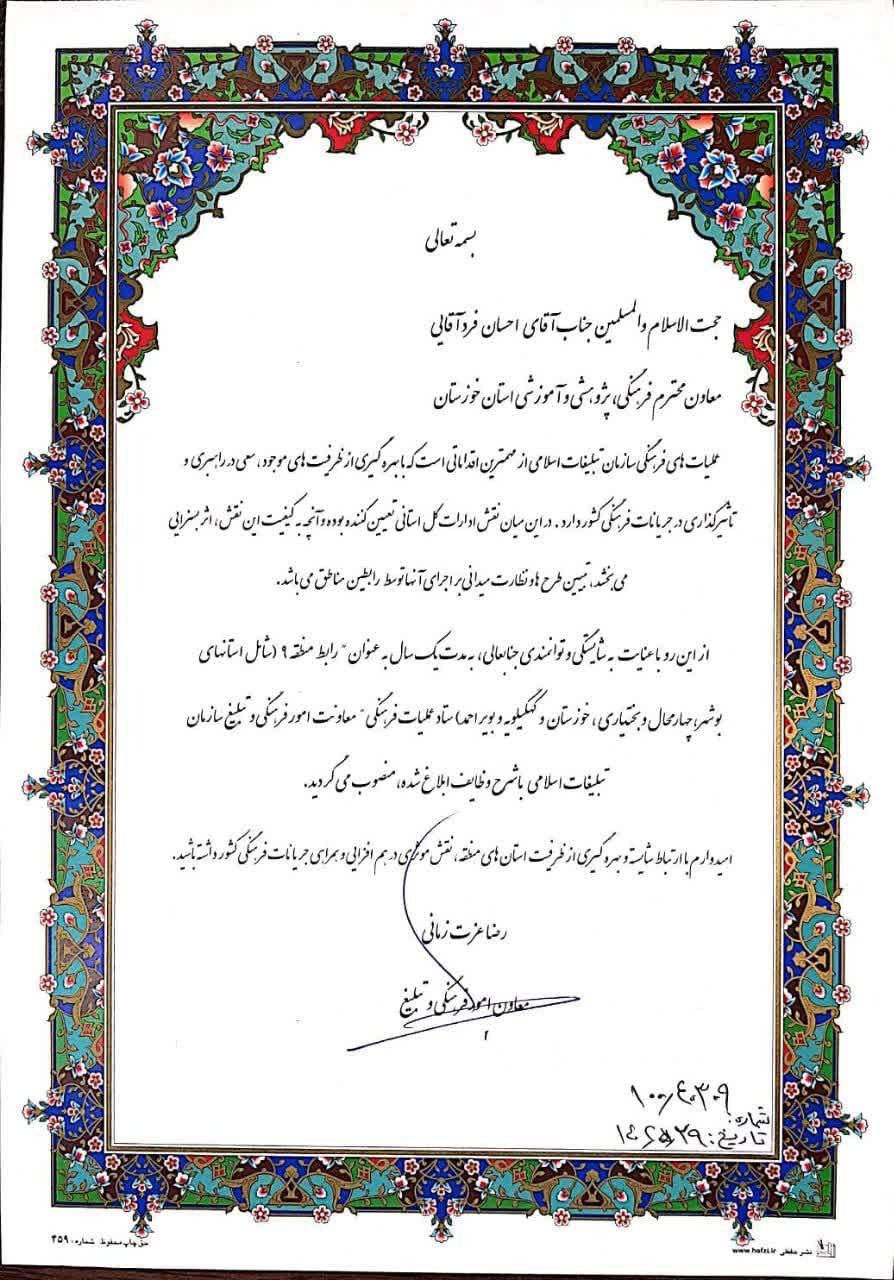 بسمه تعالی
حجت الاسلام والمسلمین جناب آقای احسان فردآقایی
معاون محترم فرهنگی، پژوهشی و آموزشی استان خوزستان
عملیات های فرهنگی سازمان تبلیغات اسلامی از مهمترین اقداماتی است که با بهره گیری از ظرفیت های موجود، سعی در راهبری و
تأثیرگذاری در جریانات فرهنگی کشور دارد. در این میان نقش ادارات کل استانی تعیین کننده بوده و آنچه به کیفیت این نقش، اثر بسزایی
می بخشد، تبیین طرح ها و نظارت میدانی بر اجرای آنها توسط رابطین مناطق می باشد.
از این رو با عنایت به شایستگی و توانمندی جنابعالی، به مدت یک سال به عنوان "رابط منطقه ۹ (شامل استانهای
بوشهر، چهارمحال و بختیاری، خوزستان و کهگیلویه و بویراحمد) ستاد عملیات فرهنگی" معاونت امور فرهنگی و تبلیغ سازمان
تبلیغات اسلامی با شرح وظایف ابلاغ شده، منصوب می گردید.
امیدوارم با ارتباط شایسته و بهره گیری از ظرفیت استان های منطقه، نقش موثری در هم افزایی و همراهی جریانات فرهنگی کشور داشته باشید.
رضا عزت زمانی
معاون امور فرهنگی و تبلیغ
شماره:
تاریخ:
نشر حفظی www.hafzi.ir
حق چاپ محفوظ شماره: ۴۵۹